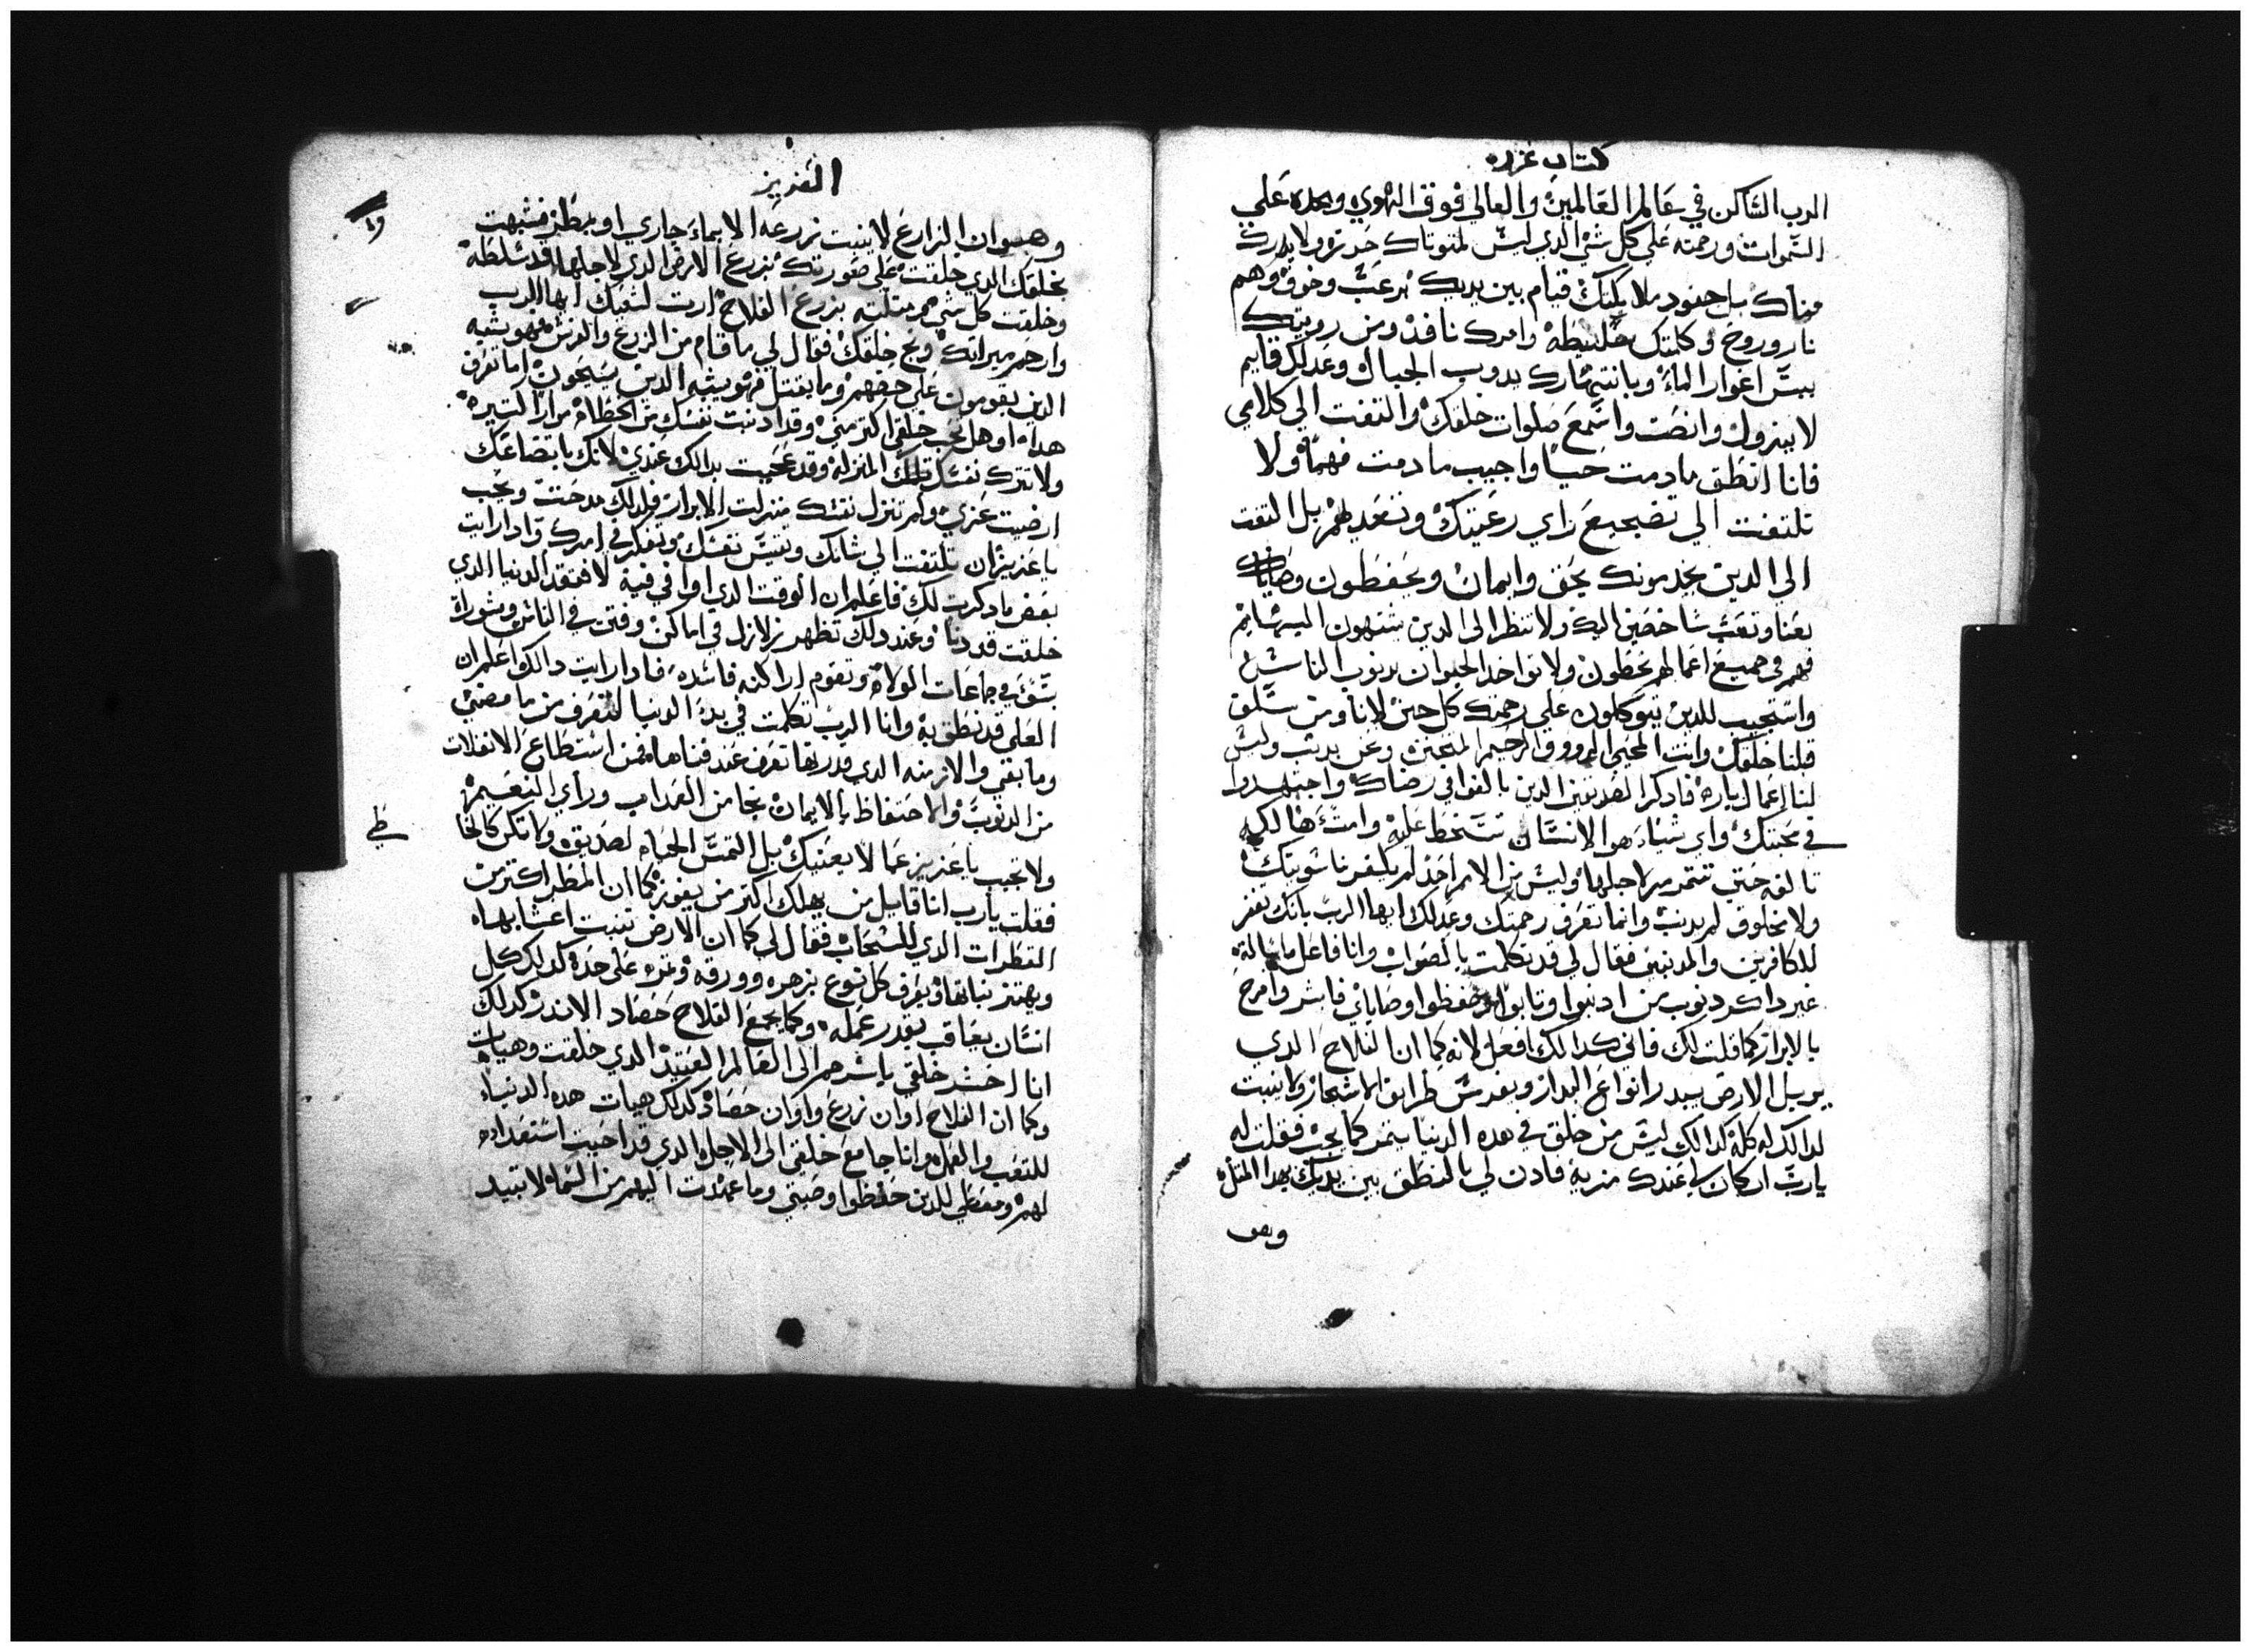 كتاب عزره
الرب الساكن في عالم العالمين والعالي فوق الهوي على
السموات ورحمته على كل شي الذي ليس حد ولا يدرك
بل جنود ملايكتك قيام بين يديك برعب وخوف وهم
نار وروح وكلمتك وامرك نافد ومن رويتك
يبس اغوار الماء وبانتهارك يدوب الجبال وعدلك قايم
لا يزول وانصت واسمع صلوات خلقك والتفت الي كلامي
فانا انطق ما دمت حيا واجيب ما دمت فهما ولا
تلتفت الي راي رعيتك بل التفت
الي الدين يخدمونك بحق وايمان ويحفظون وصاياك
بعنا وتعب شاخصين اليك ولا تنظر الى الدين يشبهون البهايم
فهم في جميع اعمالهم يخطون ولا تواخد الحيوان بدنوب الناس
واستجيب للدين يتوكلون على رحمتك كل حين لانا ومن سلف
قلنا خلقك وانت المحيي الرووف الرحيم المتحنن ونحن بديت وليس
لنا اعمال بارة فادكر الصديقين الدين بالغوا في رضاك واجتهدوا
في محبتك واي شياء هو الانسان تسخط عليه
حتي تتمرمر لاجلها وليس من الامم احد لم يكفر
ولا مخلوق لم يدنب وانما تعرف رحمتك وعدلك ايها الرب بانك تغفر
للكافرين والمدنبين فقال لي قد تكلمت بالصواب وانا فاعل ما سالته
غير داكر دنوب من ادنبوا وتابوا وحفظوا وصاياي فابشر وافرح
بالابرار كما قلت لك فاني كدالك افعل لانه كما ان الفلاح الدي
يوبل الارض يبدر انواع البدار ويغرس طرايق الاشجار ولا ينبت
لدالك له كله كدالك ليس من خلق في هده الدنيا يثمر كما يجب فقلت له
يا رب ان كان لي عندك مزية فادن لي بالنطق بين يديك بهدا المثل
وهو
العزيز
وهو ان الزارع لا ينبت زرعه الا بماء جاري او بمطر فشبهت
بخلقك الدي خلقت على صورتك بزرع الارض الدي لاجلها قد سلطه
وخلقت كل شي مثلته بزرع الفلاح لشعبك ايها الرب
وارحم ميراتك ونج خلقك فقال لي ما قام من الزرع والغرس فهو يشبه
الدين يقومون على حقهم وما يفتل فهو يشبه الدين اما تعرف
هدا او هل تحب خلقي اكتر مني وقد ادنبت نفسك من الخطاه مرارا كتيره
ولا تترك نفسك تلك المنزله وقد عجبت بدالك عندي لانك باتضاعك
ارضيت عزي ولم تنزل نفسك منزلت الابرار فلدلك مدحتت ويجب
يا عزيز ان تلتفت الي شانك وتفتش نفسك وتفكر في امرك وادا رايت
بعض ما دكرت لك فاعلم ان الوقت الدي اوافي فيه لافتقد الدنيا الدي
خلقت قد دنا وعند دلك تظهر زلازل في اماكن وفتن في الناس ومشوراة
سوء في جماعات الولاه وتقوم اراكنه فاسده فادا رايت دالك واعلم ان
العلي قد نطق به وانا الرب تكلمت في بدء الدنيا لتعرف من ما مضي
وما بقي والازمنه الدي قدرتها تعرف عند فناها فمن استطاع الانفلات
من الدنوب والاحتفاظ بالايمان نجا من العداب وراي النعيم
ولا تحب يا عزيز عما لا يعنيك بل التمس الحياه لصديق ولا تكن كالخا
طي
فقلت يا رب انا قايل من يهلك اكتر من يفوز كما ان المطر اكتر من
القطرات الدي للسحاب فقال لي كما ان الارض تنبت اعشابها
ويهتز نباتها ويعرف كل نوع بزهره وورقه وثمره على حده كدلك كل
انسان يعاقب بقدر عمله وكما يجمع الفلاح حصاد الاندر كدلك
انا احشر خلقي باسرهم الى العالم العتيد الدي خلقت وهيات
وكما ان الفلاح اوان زرع واوان حصاد كدلك هيات هده الدنيا
للتعب والعمل وانا جامع خلقي الى الاجل الدي قد احببت استعداده
لهم ومعطي للدين حفظوا وصيتي وما عهدت اليهم من السماء لا تبيد